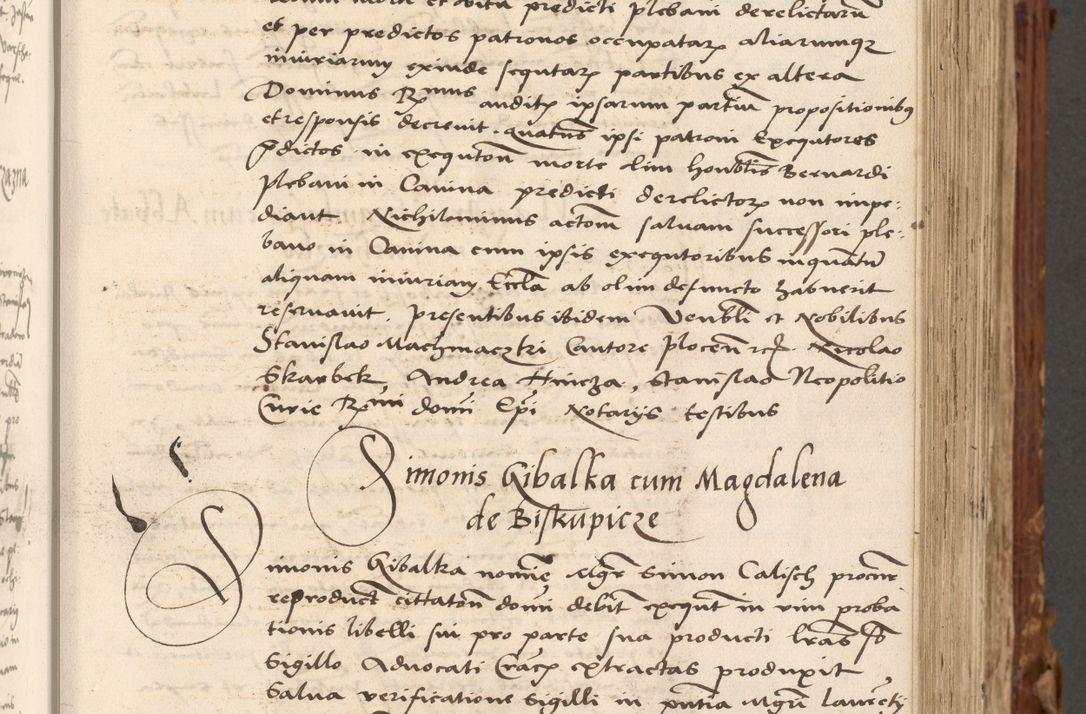 et obitu predicti plebani derelictarum
et per predictos patronos occupatarz aliarumqz
iniuriarum exinde sequtarz partibus ex altera
Dominus Rmus auditis ipsarum partium propositionibus
et responsis decreuit quatenus ipsi patroni Exequtores
predictos in exequtione morte olim honorabilis Bernardi
plebani in Canina predicti derelictorz non impe:
diant. Nichilominus actionem saluam successori ple:
bano in Canina cum ipsis exequtoribus inquantum
aliquam iniuriam Eccla ab olim defuncto habuerit
reseruauit. Presentibus ibidem Venbli et Nobilibus
Stanislao Maczmaczki Cantore plocen Nicolao
Skarbek, Andrea Hincza, Stanislao Neopolitio
Curie Rmi domi Epi Notarijs testibus
Simonis Gibalka cum Magdalena
de Biskupicze
Simonis Gibalka nomine Mgr Simon Calisch procur
reproduct cittation domi debit exequt in vim proba
tionis libelli sui pro parte sua producti lras sb
Sigillo Aduocati Crac extractas produxit
Salua verificatione sigilli in pntia Mgri Laurentij